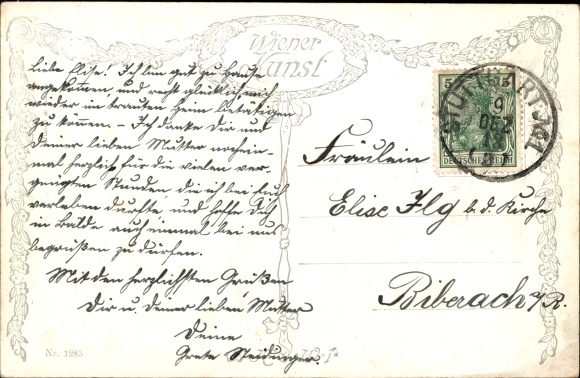 Wiener
Kunst
Liebe Elise! Ich bin gut zu Hause
angekommen, und recht glücklich mich
wieder im trauten Heim betätigen
zu können. Ich danke Dir und
Deiner lieben Mutter nochein-
mal herzlich für die vielen ver-
gnügten Stunden die ich bei Euch
verleben durfte, und hoffe Dich
in Bälde auch einmal bei uns
begrüßen zu dürfen.
Mit den herzlichsten Grüßen
Dir u. Deiner lieben Mutter
Deine
Grete
Nr. 1285
5 5
DEUTSCHES REICH
STUTTGART
9
DEZ
Fräulein
Elise Ilg b. d. Kirche
Biberach a/R.